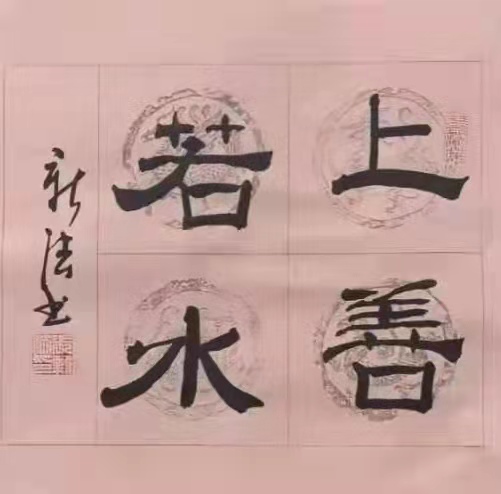 上善
若水
新法书